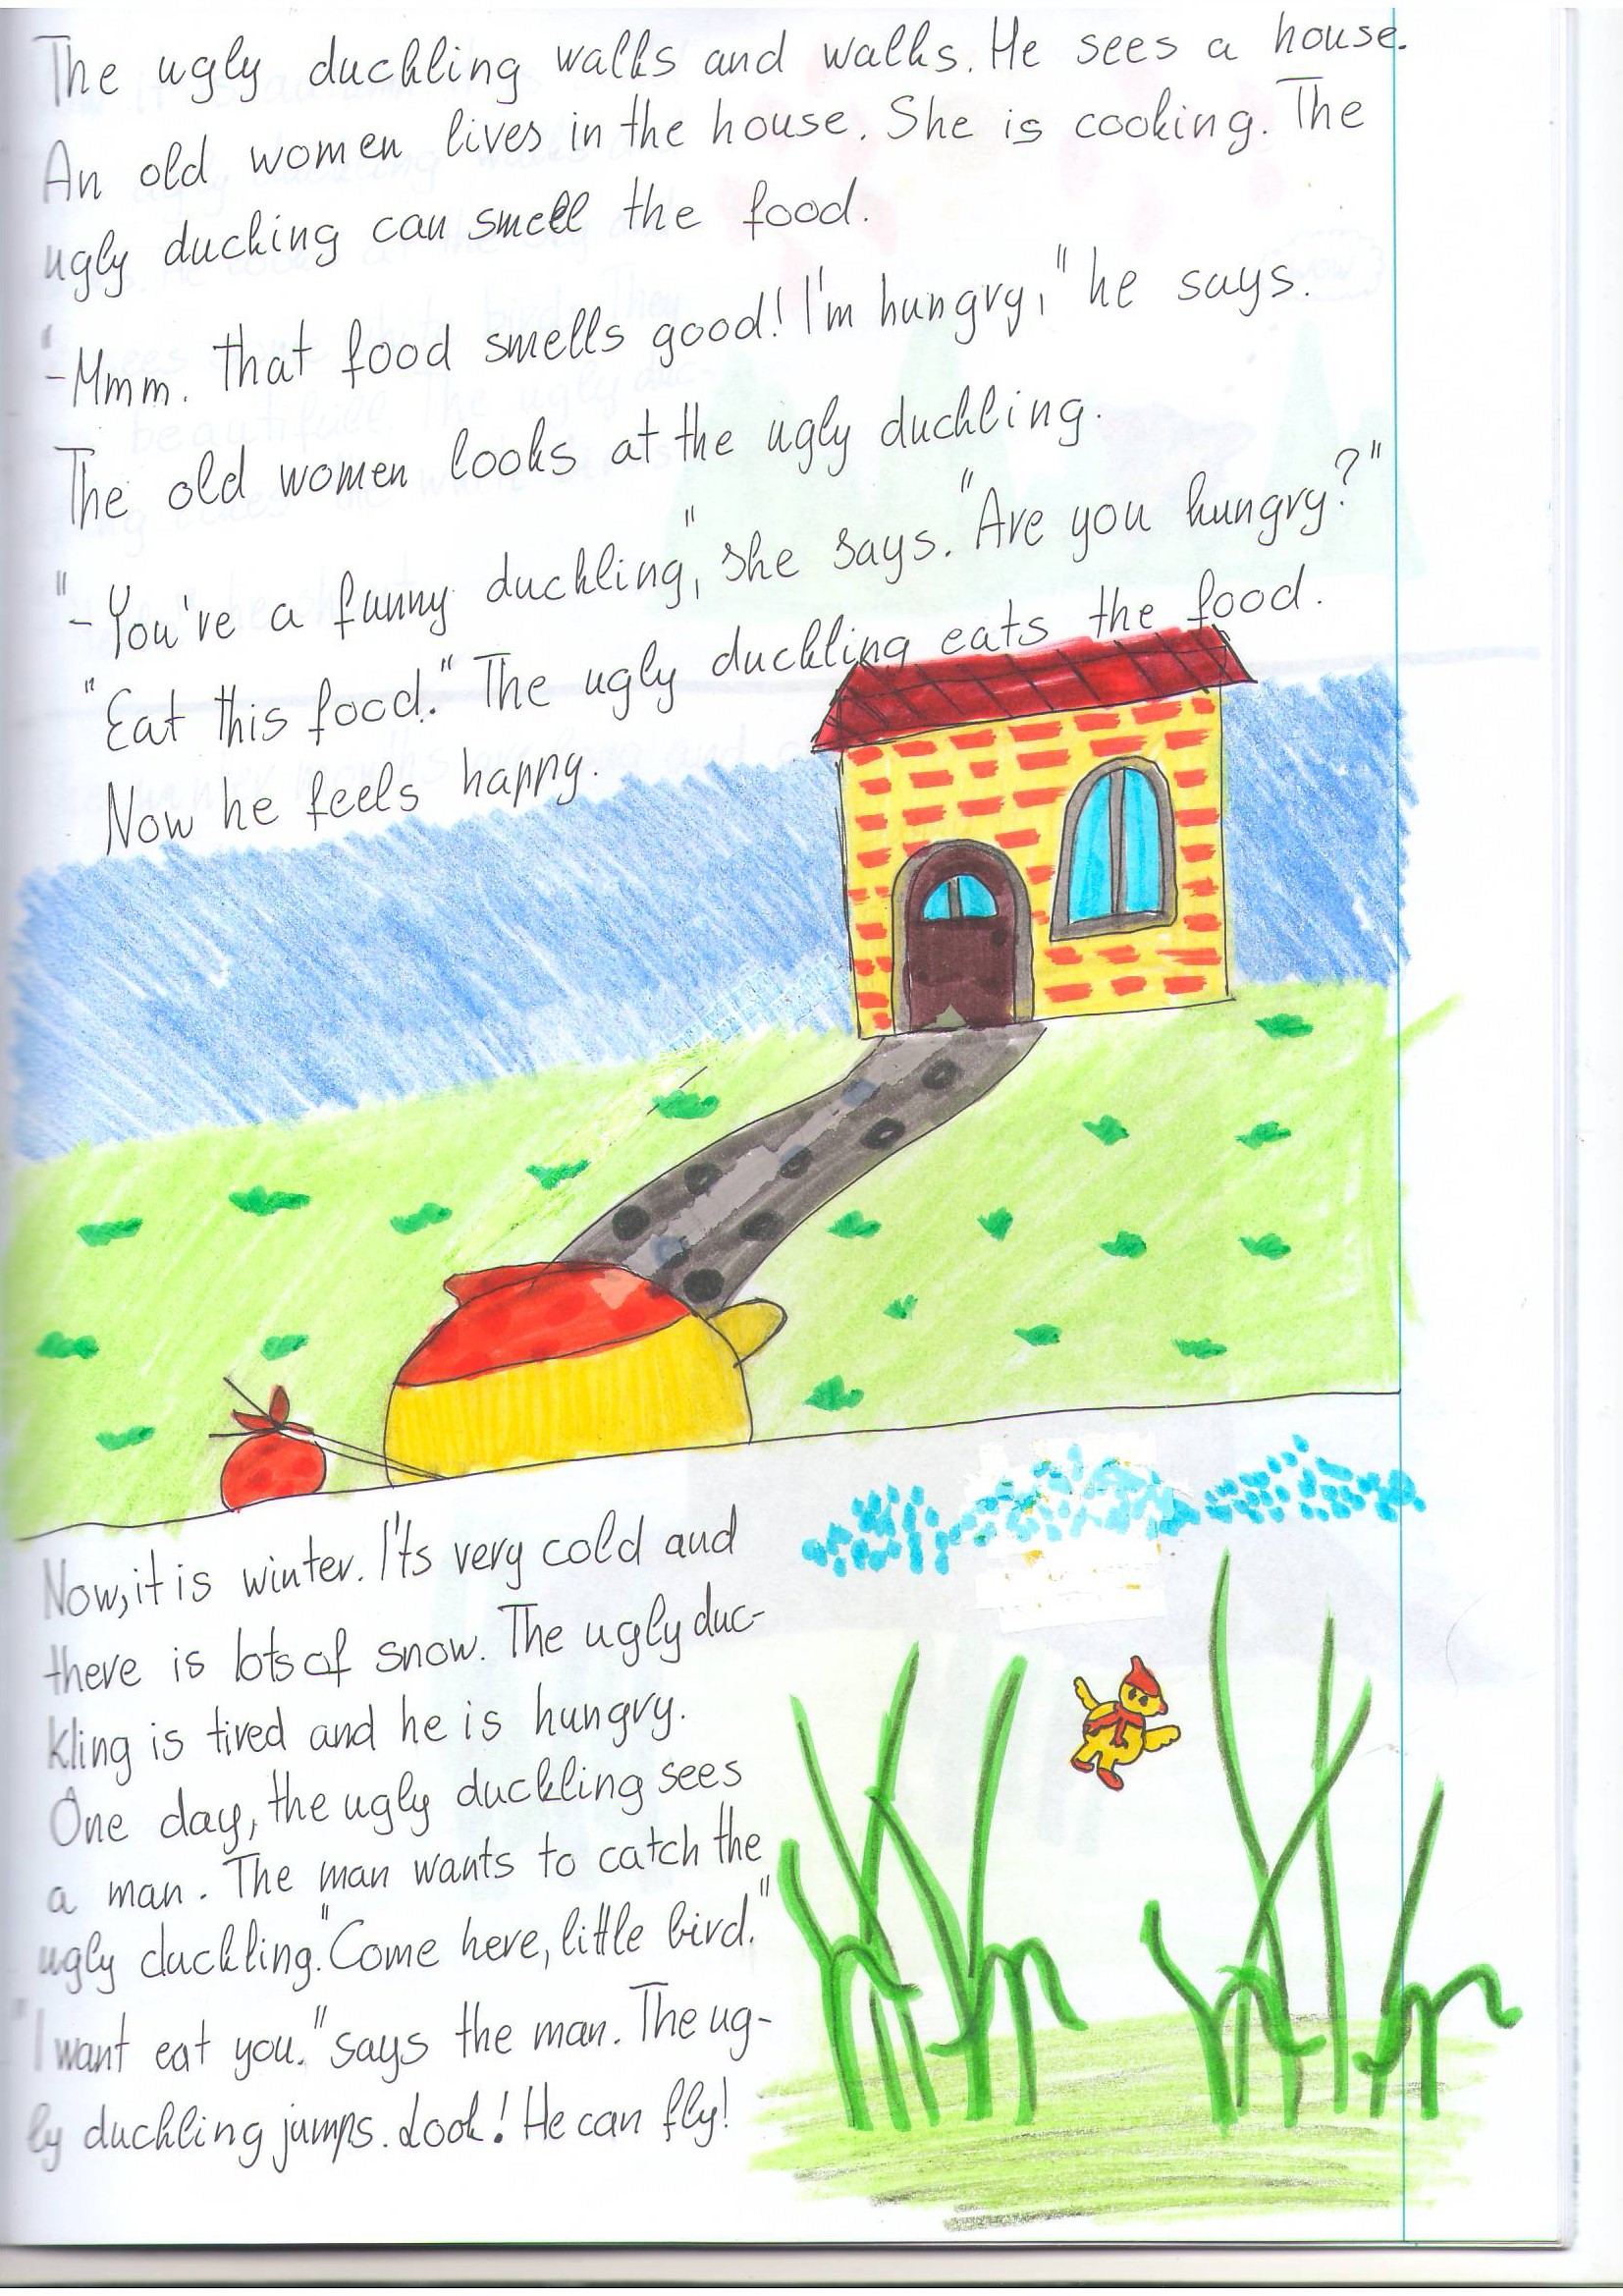 The ugly duckling walks and walks. He sees a house.
An old women lives in the house. She is cooking. The
ugly ducking can smell the food.
"-Mmm. That food smells good! I'm hungry," he says.
The old women looks at the ugly duckling.
"-You're a funny duckling," she says. "Are you hungry?"
"Eat this food." The ugly duckling eats the food.
Now he feels happy.
Now, it is winter. It's very cold and
there is lots of snow. The ugly duc-
kling is tired and he is hungry.
One day, the ugly duckling sees
a man. The man wants to catch the
ugly duckling. "Come here, little bird."
"I want eat you." says the man. The ug-
ly duckling jumps. Look! He can fly!